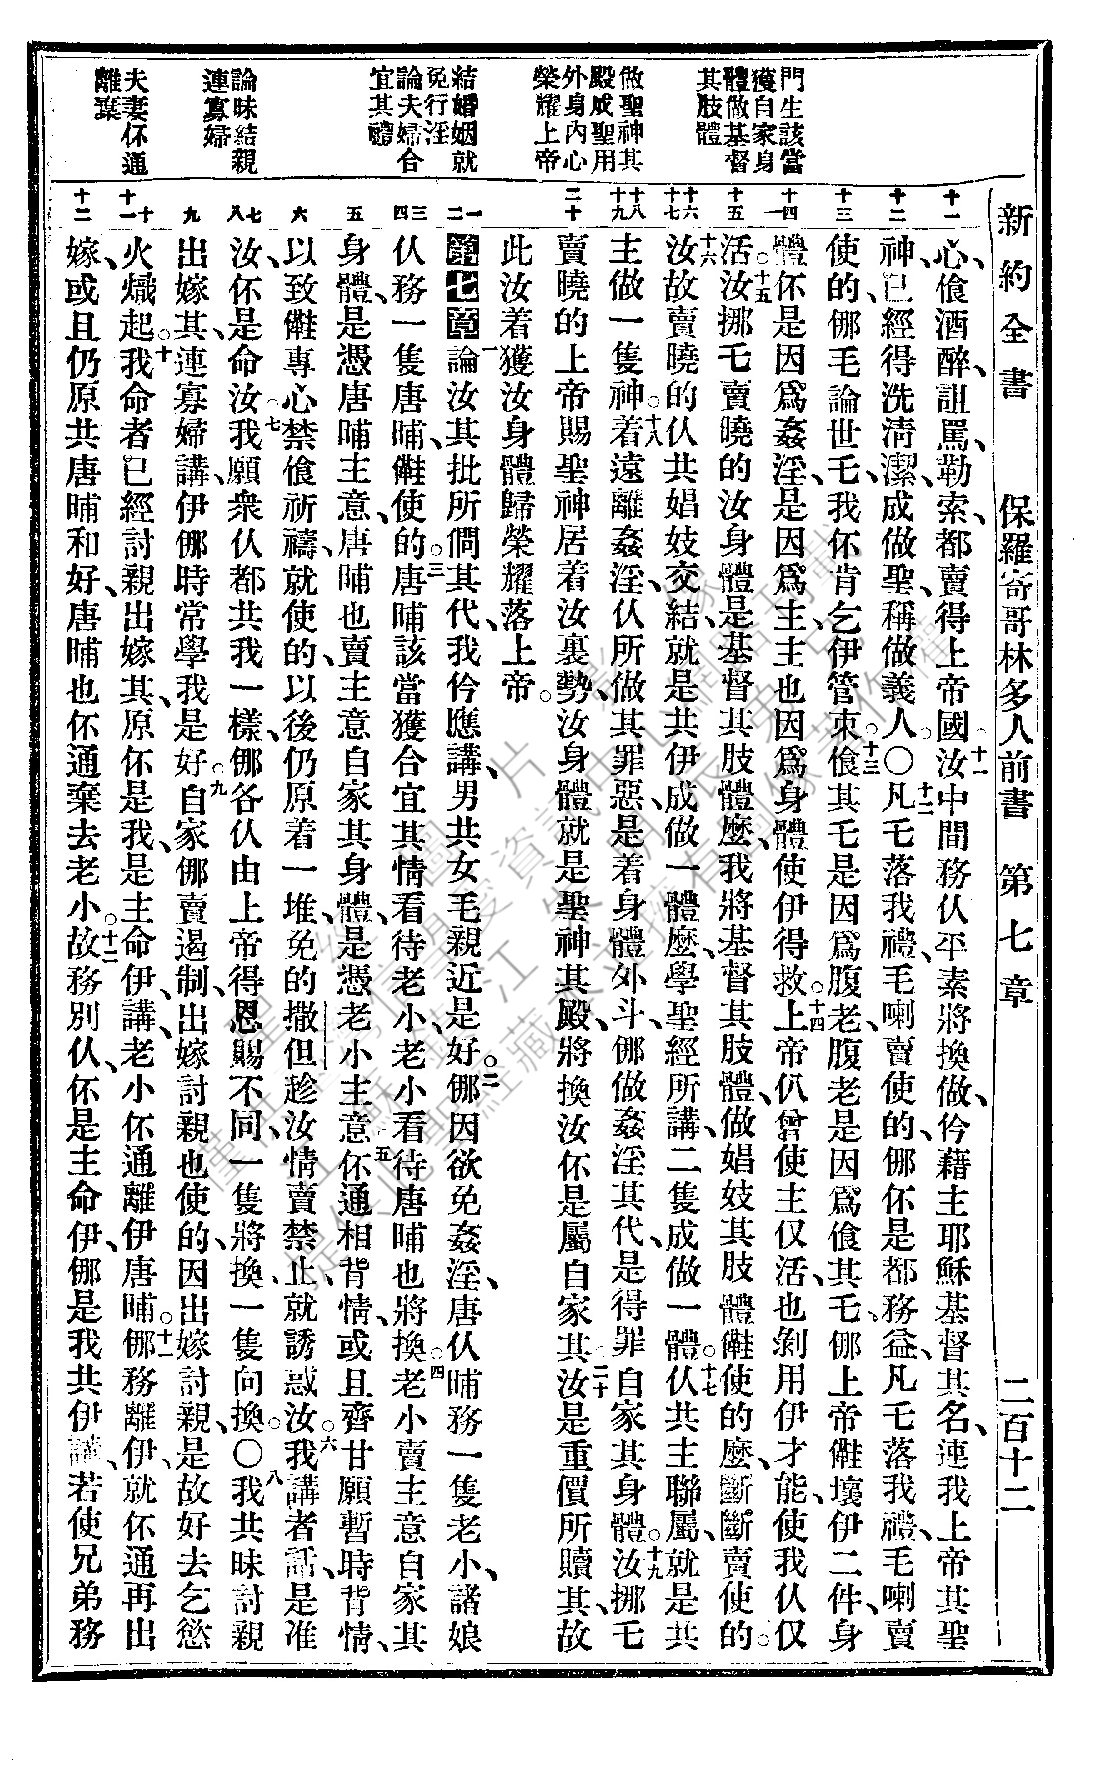 新約全書 保羅寄哥林多人前書 第七章 二百十二
門生該當
獲自家身
體做基督
其肢體
做聖神其
殿成聖用
外身內心
榮耀上帝
結婚姻就
免行淫
論夫婦合
宜其禮
論昧結親
連寡婦
夫妻伓通
離棄
心、飧酒醉、詛罵、勒索、都賣得上帝國。十一汝中間務仈平素將換做、伶藉主耶穌基督其名、連我上帝其聖
神、已經得洗清潔、成做聖、稱做義人。〇十二凡乇落我禮、毛喇賣使的、㑚伓是都務益、凡乇落我禮、毛喇賣
使的、㑚毛論世乇、我伓肯乞伊管束。十三飧其乇是因爲腹老、腹老是因爲飧其乇、㑚上帝𠆧壞伊二件、身
體伓是因爲姦淫、是因爲主、主也因爲身體使伊得救。十四上帝仈曾使主仅活、也剝用伊才能、使我仈仅
活。十五汝挪乇賣曉的汝身體是基督其肢體麽、我將基督其肢體、做娼妓其肢體𠆧使的麽、斷斷賣使的。
十六汝故賣曉的仈共娼妓交結、就是共伊成做一體麽、學聖經所講、二隻成做一體。十七仈共主聯屬、就是共
主做一隻神。十八着遠離姦淫、仈所做其罪惡、是着身體外斗、㑚做姦淫其代、是得罪自家其身體。十九汝挪乇
賣曉的上帝賜聖神居着汝裏勢、汝身體就是聖神其殿、將換汝伓是屬自家其、二十汝是重價所贖其、故
此汝着獲汝身體歸榮耀落上帝。
第七章 一論汝其批所倜其代、我伶應講、男共女毛親近是好。二㑚因欲免姦淫、唐仈晡務一隻老小、諸娘
仈務一隻唐晡、𠆧使的。三唐晡該當獲合宜其情看待老小、老小看待唐晡也將換。四老小賣主意自家其
身體、是憑唐晡主意、唐晡也賣主意自家其身體、是憑老小主意。五伓通相背情、或且齊甘願暫時背情、
以致𠆧專心禁飧祈禱、就使的、以後仍原着一堆、免的撒但趁汝情賣禁止、就誘惑汝。六我講者話、是准
汝、伓是命汝。七我願衆仈都共我一樣、㑚各仈由上帝得恩賜不同、一隻將換、一隻向換。〇八我共昧討親
出嫁其、連寡婦講、伊㑚時常學我是好。九自家㑚賣遏制、出嫁討親也使的、因出嫁討親、是故好去乞慾
火熾起。十我命者已經討親出嫁其、原伓是我、是主命伊講、老小伓通離伊唐晡。十一㑚務離伊、就伓通再出
嫁、或且仍原共唐晡和好、唐晡也伓通棄去老小。十二故務別仈、伓是主命伊、㑚是我共伊講、若使兄弟務